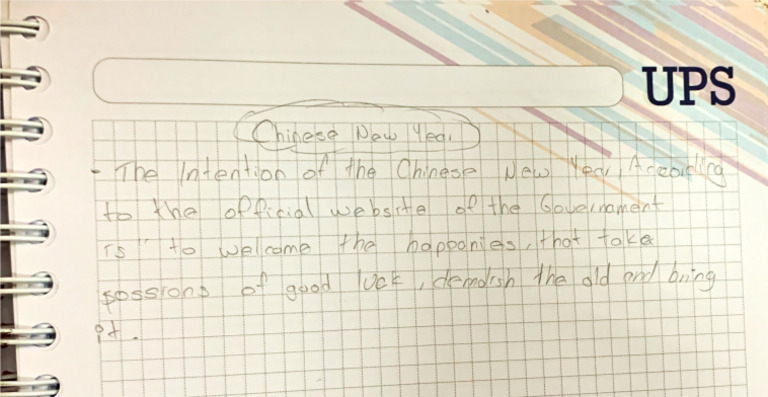 UPS
Chinese New Year
- The Intention of the Chinese New Year, According
to the official website of the Governament
is " to welcome the happonies, that take
possions of good luck, demolish the old and bring
it.